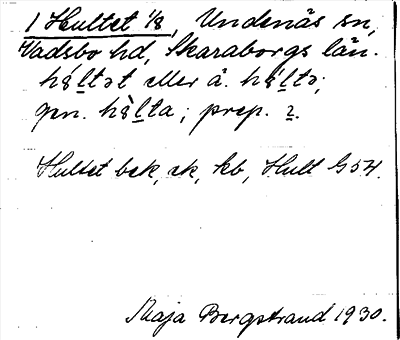 1 Hultet 1/8, Undenäs sn,
Vadsbo hd, Skaraborgs län.
húltət eller å. húltə;
gen. hùlta; prep. 2.
Hultet bek, ek, kb, Hult G 54.
Maja Bergstrand 1930.